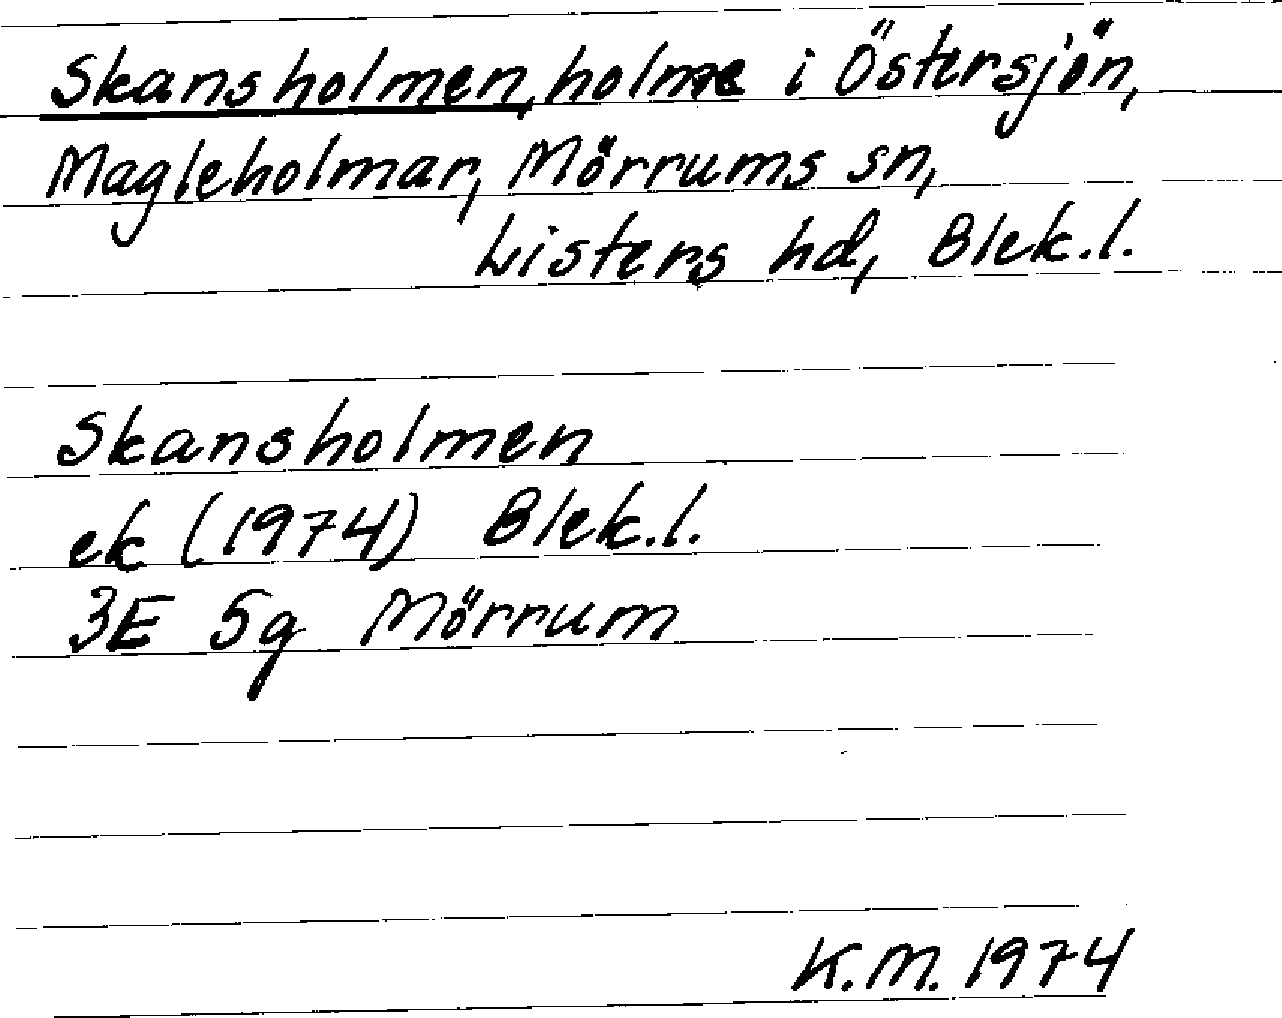 Skansholmen, holme i Östersjön,
Magleholmar, Mörrums sn,
Listers hd, Blek.l.
Skansholmen
ek (1974) Blek.l.
3E 5g Mörrum
K.M. 1974